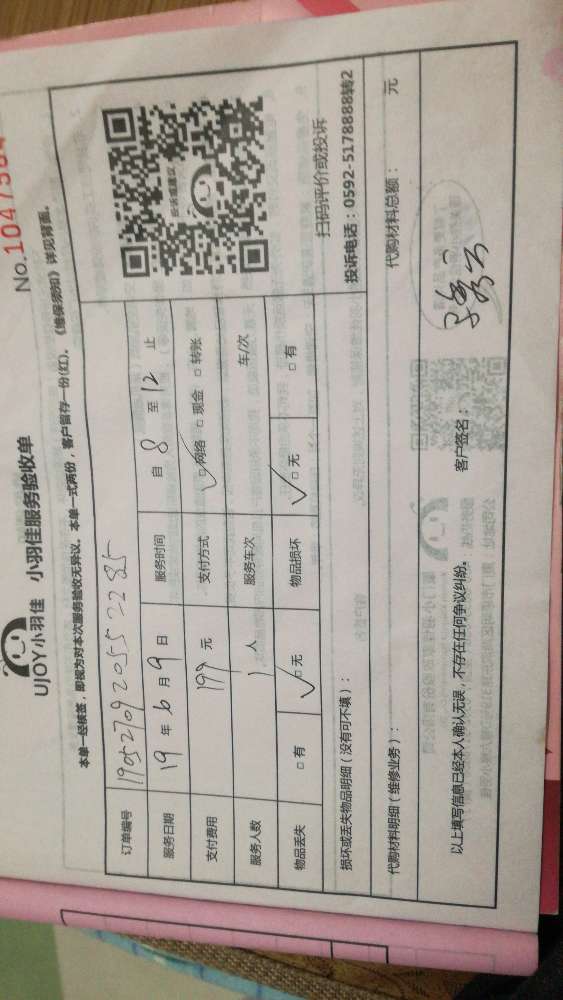 No.
UJOY小羽佳 小羽佳服务验收单
本单一经核签，即视为对本次服务验收无异议。本单一式两份，客户留存一份(红)。《维保须知》详见背面。
订单编号 1905270920552285
服务日期 19年6月9日 服务时间 自8至12止
支付费用 199元 支付方式 ☑网络 □现金 □转账
服务人数 1人 服务车次 车/次
物品丢失 □有 ☑无 物品损坏 ☑无 □有
投诉或建议
扫码评价或投诉
损坏或丢失物品明细（没有可不填）：
投诉电话：0592-5178888转2
代购材料明细（维修业务）：
代购材料总额： 元
以上填写信息已经本人确认无误，不存在任何争议纠纷。
客户签名：